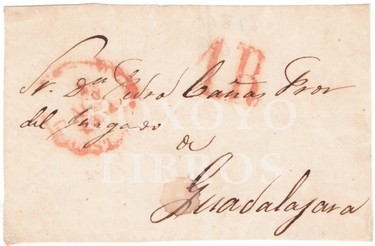 1R
Sr. Dn. Pedro Cañas Pror
del Juzgado
de
Guadalajara
BOXOYO
LIBROS